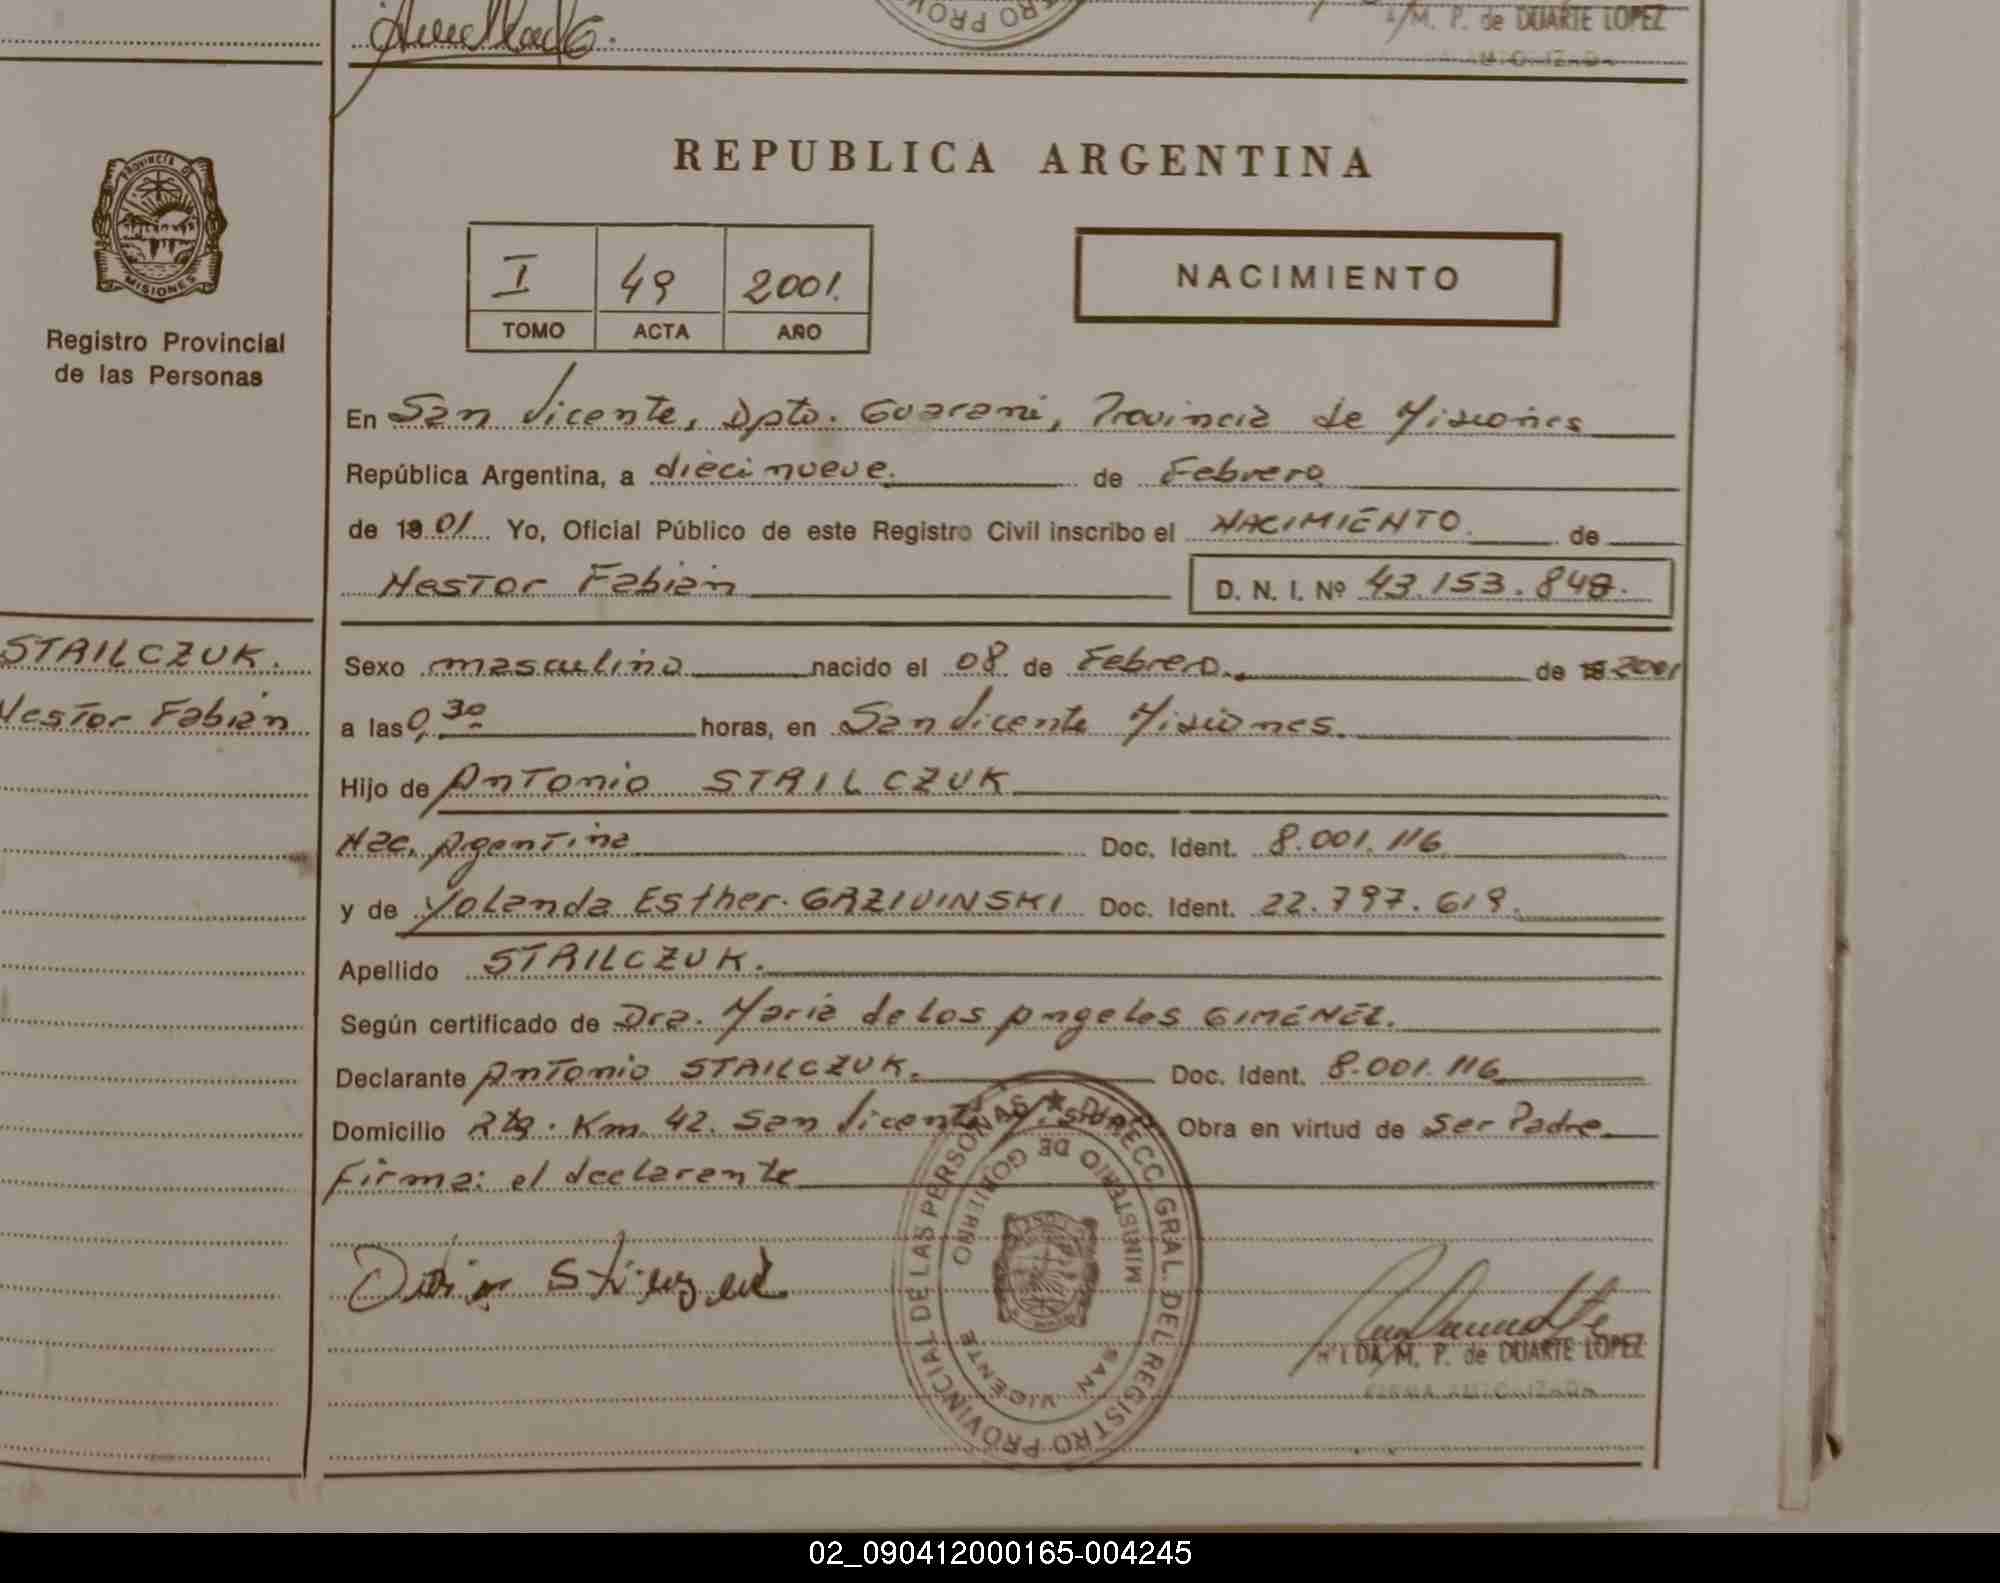 M. P. de DUARTE LOPEZ
REPUBLICA ARGENTINA
PROVINCIA DE
MISIONES
Registro Provincial
de las Personas
I 49 2001.
TOMO ACTA AÑO
NACIMIENTO
En San Vicente, Dpto. Guarani, Provincia de Misiones
República Argentina, a diecinueve. de Febrero
de 1901 Yo, Oficial Público de este Registro Civil inscribo el NACIMIENTO. de
Nestor Fabián D. N. I. Nº 43.153.848.
STRILCZUK.
Nestor Fabián
Sexo masculino nacido el 08 de Febrero. de 2001
a las 0,30 horas, en San Vicente Misiones.
Hijo de Antonio STRILCZUK
Nac. Argentina Doc. Ident. 8.001.116
y de Yolanda Esther. GRZIVINSKI Doc. Ident. 22.797.619.
Apellido STRILCZUK.
Según certificado de Dra. Maria de los Angeles GIMÉNEZ.
Declarante Antonio STRILCZUK. Doc. Ident. 8.001.116
Domicilio Km. 42. San Vicente Misiones Obra en virtud de ser Padre
Firma: el declarante
DIRECC. GRAL. DEL REGISTRO PROVINCIAL DE LAS PERSONAS
MINISTERIO DE GOBIERNO
SAN VICENTE
M. P. de DUARTE LOPEZ
FIRMA AUTORIZADA
02_090412000165-004245